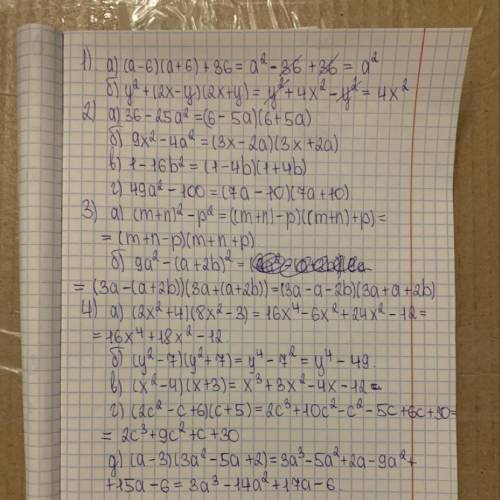 1) а) (a-6)(a+6)+36 = a² - 36 + 36 = a²
б) y² + (2x-y)(2x+y) = y² + 4x² - y² = 4x²
2) а) 36 - 25a² = (6-5a)(6+5a)
б) 9x² - 4a² = (3x-2a)(3x+2a)
в) 1 - 16b² = (1-4b)(1+4b)
г) 49a² - 100 = (7a-10)(7a+10)
3) а) (m+n)² - p² = ((m+n)-p)((m+n)+p) =
= (m+n-p)(m+n+p)
б) 9a² - (a+2b)² =
= (3a-(a+2b))(3a+(a+2b)) = (3a-a-2b)(3a+a+2b)
4) а) (2x²+4)(8x²-3) = 16x⁴ - 6x² + 24x² - 12 =
= 16x⁴ + 18x² - 12
б) (y²-7)(y²+7) = y⁴ - 7² = y⁴ - 49.
в) (x²-4)(x+3) = x³ + 3x² - 4x - 12 =
г) (2c²-c+6)(c+5) = 2c³ + 10c² - c² - 5c + 6c + 30 =
= 2c³ + 9c² + c + 30
д) (a-3)(3a²-5a+2) = 3a³ - 5a² + 2a - 9a² +
+ 15a - 6 = 3a³ - 14a² + 17a - 6.